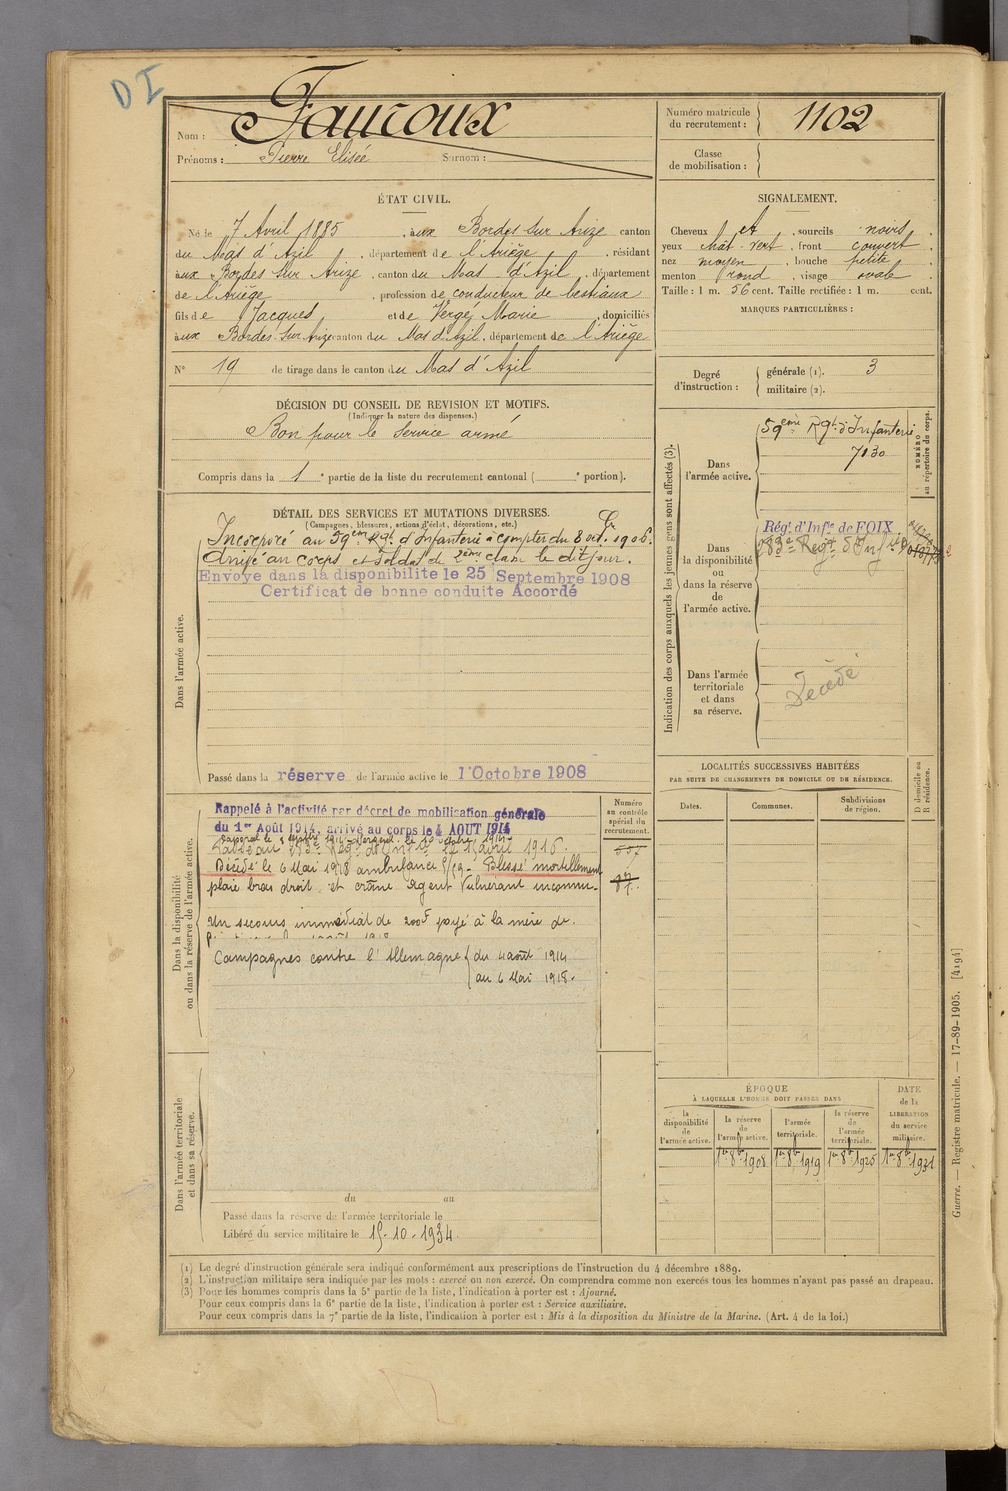 D I
Nom : Fauroux
Prénoms : Pierre Elisée Surnom :
Numéro matricule
du recrutement : 1102
Classe
de mobilisation :
ÉTAT CIVIL.
Né le 7 Avril 1885, aux Bordes sur Arize canton
du Mas d'Azil, département de l'Ariège, résidant
aux Bordes sur Arize, canton du Mas d'Azil, département
de l'Ariège, profession de conducteur de bestiaux
fils de Jacques et de Vergé Marie, domiciliés
aux Bordes-sur-Arize canton du Mas d'Azil, département de l'Ariège
N° 19 de tirage dans le canton du Mas d'Azil
SIGNALEMENT.
Cheveux et, sourcils noirs,
yeux chât-vert, front couvert,
nez moyen, bouche petite,
menton rond, visage ovale
Taille : 1 m. 56 cent. Taille rectifiée : 1 m. cent.
MARQUES PARTICULIÈRES :
Degré
d'instruction :
générale (1). 3
militaire (2).
DÉCISION DU CONSEIL DE REVISION ET MOTIFS.
(Indiquer la nature des dispenses.)
Bon pour le service armé
Compris dans la 1e partie de la liste du recrutement cantonal ( e portion).
DÉTAIL DES SERVICES ET MUTATIONS DIVERSES.
(Campagnes, blessures, actions d'éclat, décorations, etc.)
Dans l'armée active.
Incorporé au 59em Rgt d'Infanterie à compter du 8 oct. 1906.
Arrivé au corps et soldat de 2ème classe le dit jour.
Envoyé dans la disponibilité le 25 Septembre 1908
Certificat de bonne conduite Accordé
Passé dans la réserve de l'armée active le 1 Octobre 1908
Indication des corps auxquels les jeunes gens sont affectés (3).
NUMÉRO
au répertoire du corps.
Dans
l'armée active.
59ème Rgt d'Infanterie
7130
Dans
la disponibilité
ou
dans la réserve
de
l'armée active.
Régt d'Infie de FOIX
283e Regt d'Infie
Dans l'armée
territoriale
et dans
sa réserve.
Décédé
LOCALITÉS SUCCESSIVES HABITÉES
PAR SUITE DE CHANGEMENTS DE DOMICILE OU DE RÉSIDENCE.
Dates.
Communes.
Subdivisions
de région.
D domicile ou
R résidence.
Dans la disponibilité
ou dans la réserve de l'armée active.
Numéro
au contrôle
spécial du
recrutement.
557
87.
Rappelé à l'activité par décret de mobilisation générale
du 1er Août 1914, arrivé au corps le 4 AOUT 1914
Décédé le 6 Mai 1918 ambulance 5/59. Blessé mortellement
plaie bras droit et crâne agent vulnérant inconnu.
Un secours immédiat de 200F payé à la mère de
Campagnes contre l'Allemagne du 4 août 1914
au 6 Mai 1918.
Dans l'armée territoriale
et dans sa réserve.
du au
Passé dans la réserve de l'armée territoriale le
Libéré du service militaire le 15-10-1934.
ÉPOQUE
À LAQUELLE L'HOMME DOIT PASSER DANS
DATE
de la
LIBÉRATION
du service
militaire.
la
disponibilité
de
l'armée active.
la réserve
de
l'armée active.
l'armée
territoriale.
la réserve
de
l'armée
territoriale.
1er 8bre 1908 1er 8bre 1919 1er 8bre 1925 1er 8bre 1931
Guerre. — Registre matricule. — 17-89-1905. [4194]
(1) Le degré d'instruction générale sera indiqué conformément aux prescriptions de l'instruction du 4 décembre 1889.
(2) L'instruction militaire sera indiquée par les mots : exercé ou non exercé. On comprendra comme non exercés tous les hommes n'ayant pas passé au drapeau.
(3) Pour les hommes compris dans la 5e partie de la liste, l'indication à porter est : Ajourné.
Pour ceux compris dans la 6e partie de la liste, l'indication à porter est : Service auxiliaire.
Pour ceux compris dans la 7e partie de la liste, l'indication à porter est : Mis à la disposition du Ministre de la Marine. (Art. 4 de la loi.)